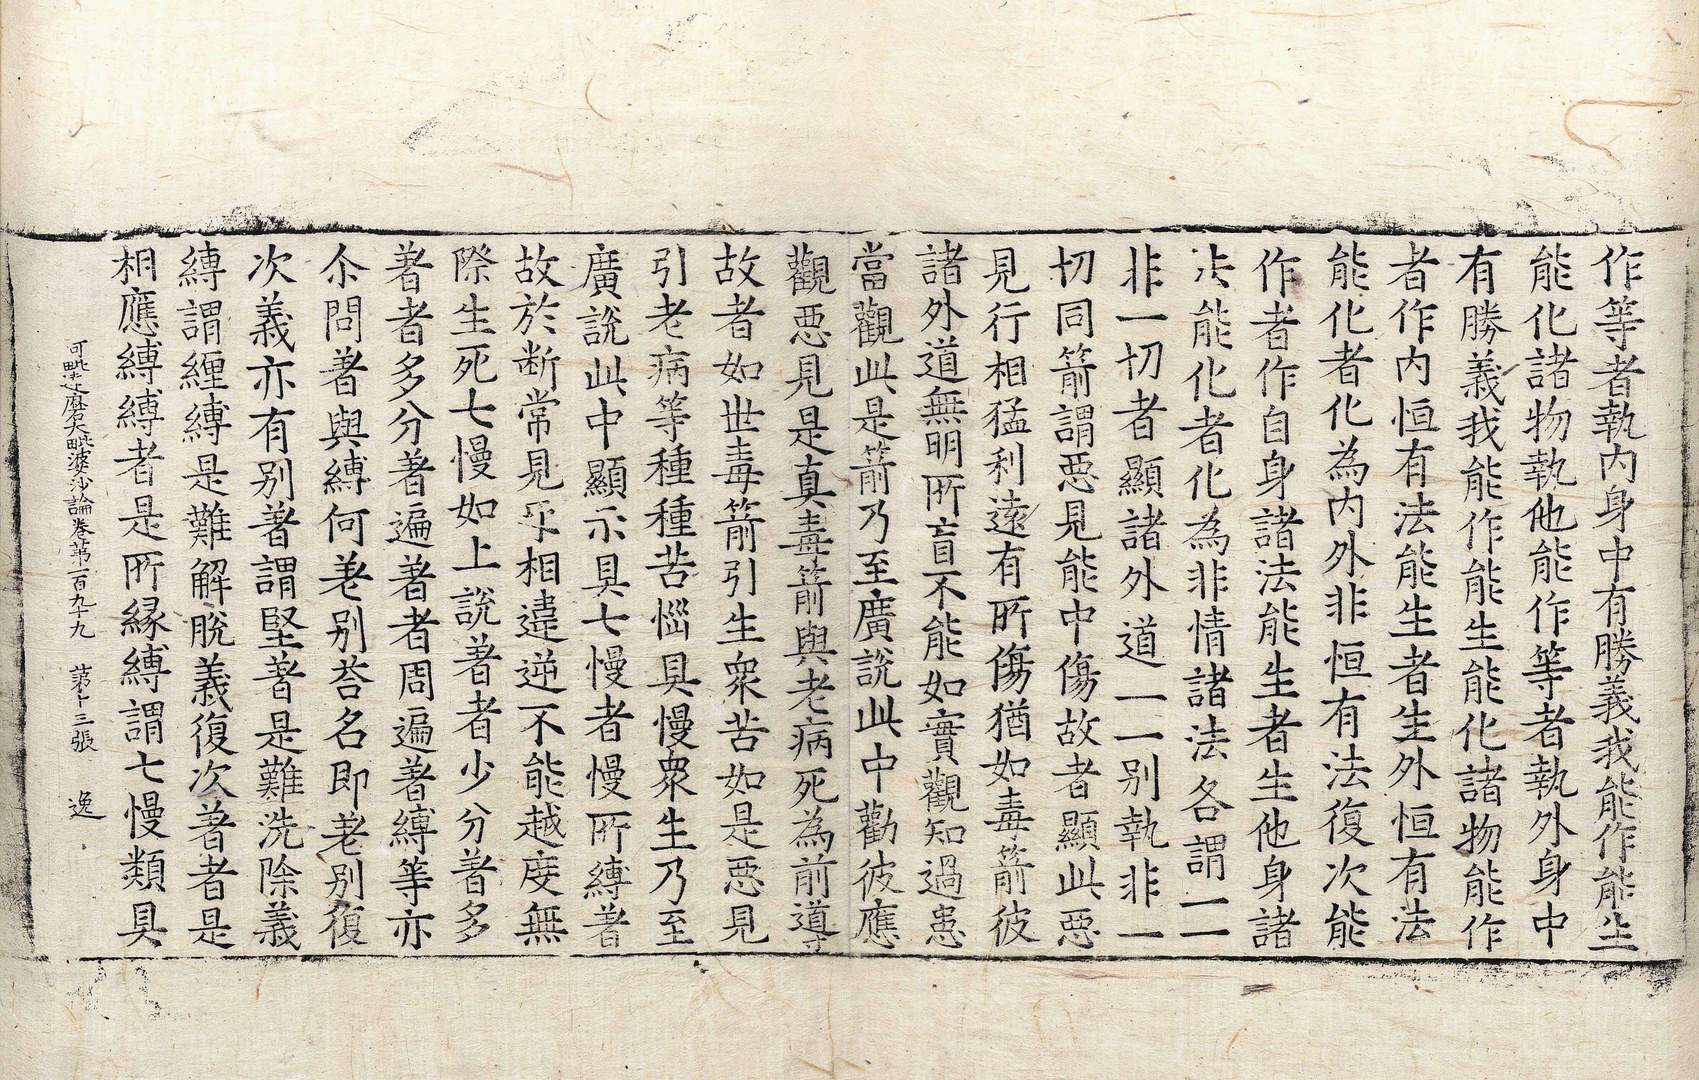 作等者執内身中有勝義我能作能生
能化諸物執他能作等者執外身中
有勝義我能作能生能化諸物能作
者作内恒有法能生者生外恒有法
能化者化為内外非恒有法復次能
作者作自身諸法能生者生他身諸
法能化者化為非情諸法各謂一一
非一切者顯諸外道一一别執非一
切同箭謂惡見能中傷故者顯此惡
見行相猛利遠有所傷猶如毒箭彼
諸外道無明所盲不能如實觀知過患
當觀此是箭乃至廣說此中勸彼應
觀惡見是真毒箭與老病死為前導
故者如世毒箭引生衆苦如是惡見
引老病等種種苦惱具慢衆生乃至
廣說此中顯示具七慢者慢所縛著
故於断常見㸦相違逆不能越度無
際生死七慢如上說著者少分著多
著者多分著遍著者周遍著縛等亦
尒問著與縛何差别荅名即差别復
次義亦有别著謂堅著是難洗除義
縛謂纒縛是難解脫義復次著者是
相應縛縛者是所縁縛謂七慢類具
阿毗達磨大毗婆沙論卷第一百九十九　第十三張　逸